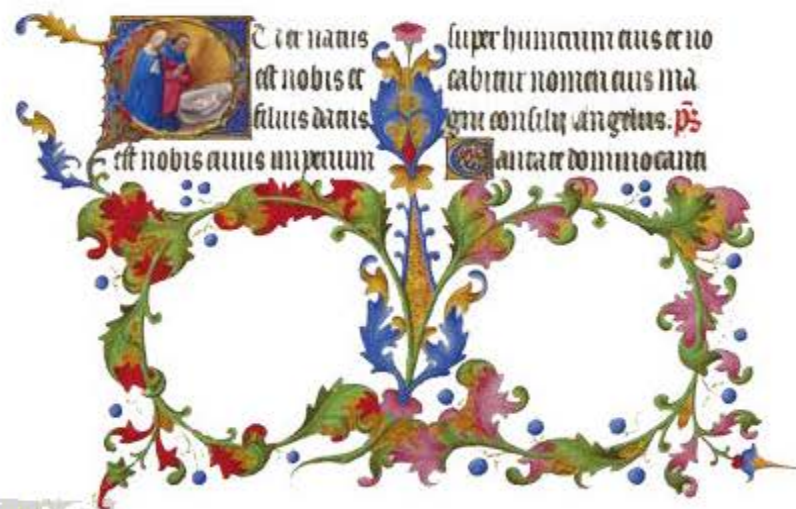 PUer natus
est nobis et
filius datus
est nobis cuius imperium
super humerum eius et vo
cabitur nomen eius ma
gni consilij angelus. p̄s
Cantate domino canti